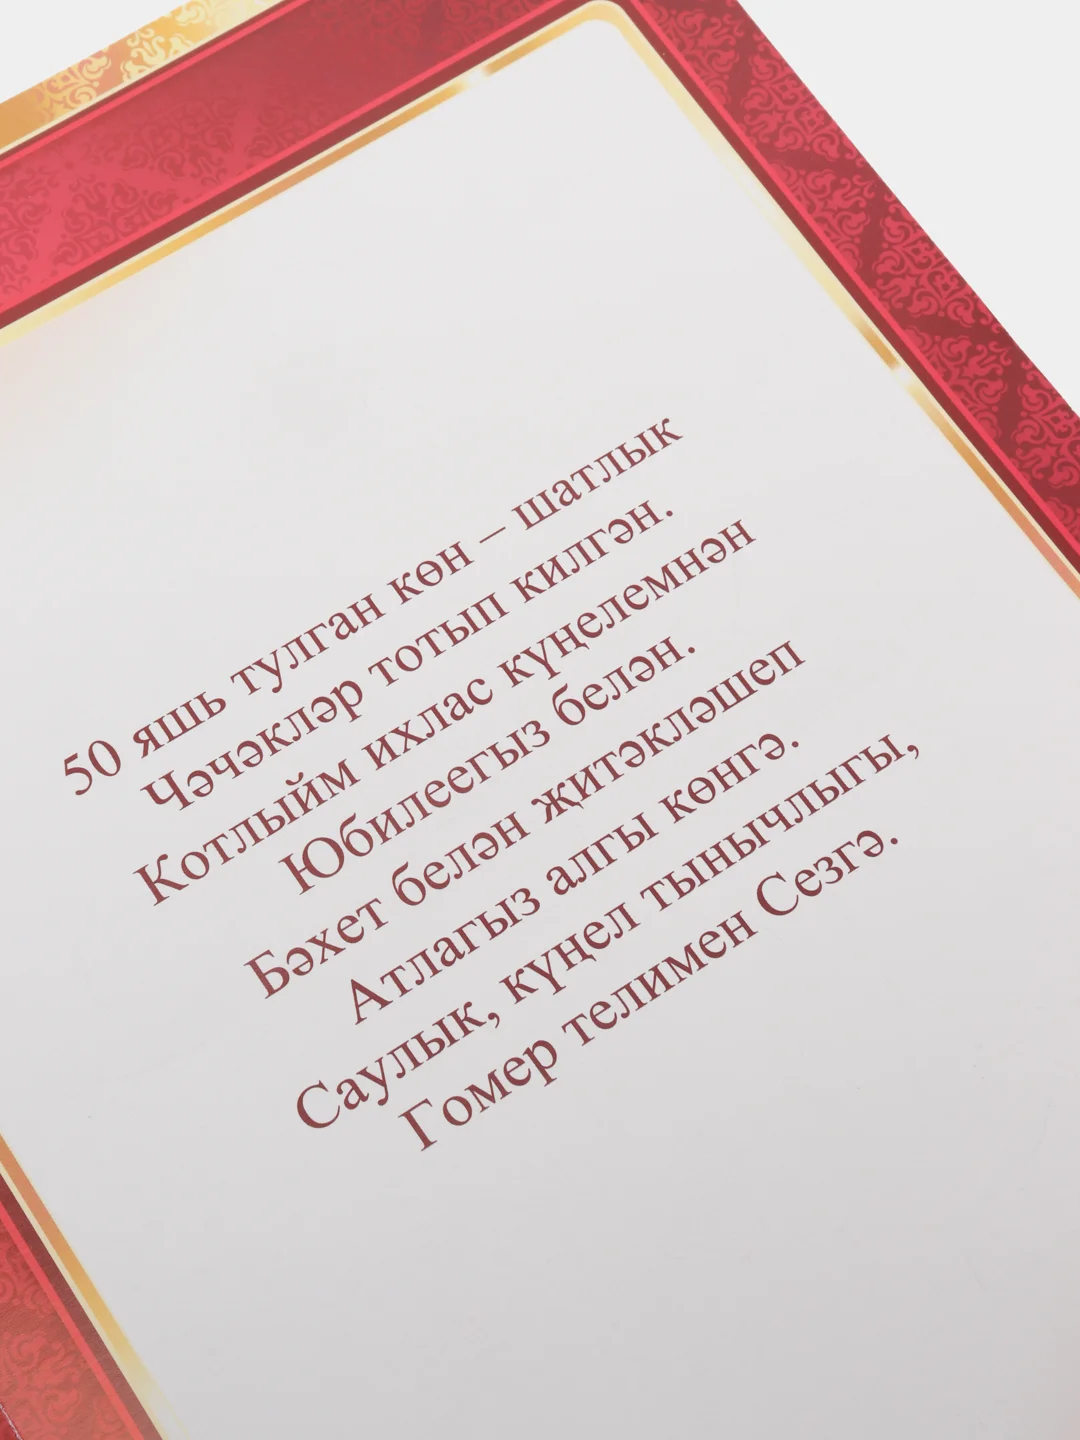 50 яшь тулган көн – шатлык
Чәчәкләр тотып килгән.
Котлыйм ихлас күңелемнән
Юбилеегыз белән.
Бәхет белән җитәкләшеп
Атлагыз алгы көнгә.
Саулык, күңел тынычлыгы,
Гомер телимен Сезгә.